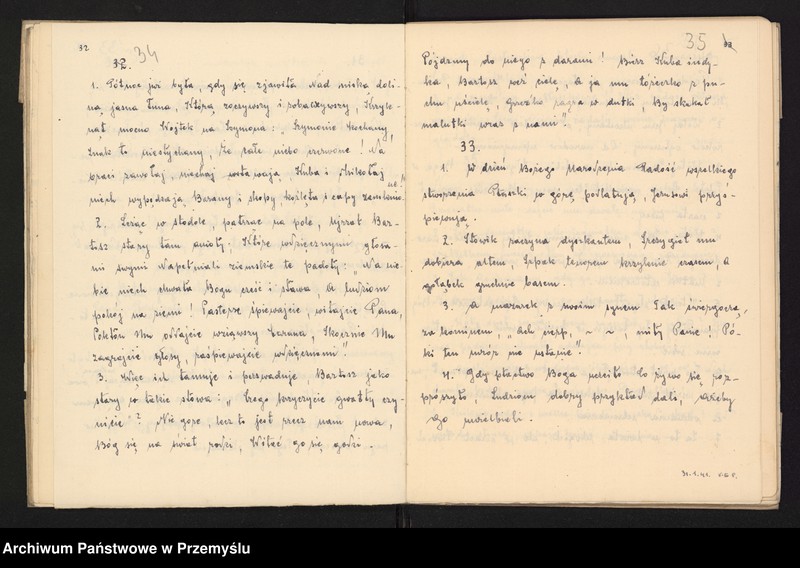 32
34
32.
1. Północ już była, gdy się zjawiła Nad niską doli-
ną jasna łuna, Którą zoczywszy i zobaczywszy, Krzyk-
nął mocno Wojtek na Szymona: „Szymonie kochany,
Znak to niesłychany, Że całe niebo czerwone! Na
braci zawołaj, niechaj wstawają, Kuba i Mikołaj
niech wypędzają Barany i skopy, koźlęta i capy zamknione!"
2. Leżąc w stodole, patrząc na pole, ujrzał Bar-
tosz stary tam anioły; Które wdzięcznymi głosa-
mi swymi Napełniali ziemskie te padoły: „Na nie-
bie niech chwała Bogu cześć i sława, A ludziom
pokój na ziemi! Pasterze śpiewajcie, witajcie Pana,
Pokłon Mu oddajcie wziąwszy barana, Skocznie Mu
zagrajcie głosy, zaśpiewajcie wdzięcznymi".
3. Więc ich tamuje i perswaduje, Bartosz jako
stary w takie słowa: „Czego krzyczycie gwałty czy-
nicie? Nie gore, lecz to jest przecz nam nowa,
Bóg się na świat rodzi, Witać go się godzi.
35
33
Pójdziemy do niego z darami! Bierz Kuba indy-
ka, Bartosz weź cielę, A ja mu łóżeczko z pu-
chu uścielę, Grzelko zagra w dutki, By skakał
malutki wraz z nami".
33.
1. W dzień Bożego Narodzenia Radość wszelkiego
stworzenia Ptaszki w górę podlatują, Jezusowi przyś-
piewują.
2. Słowik zaczyna dyszkantem, Szczygieł mu
dobiera altem, Szpak tenorem krzyknie czasem, A
gołąbek gruchnie basem.
3. A mazurek z swoim synem Tak świergoczą,
za kominem, „Ach cierp, ~ ~, miły Panie! Pó-
ki ten mróz nie ustanie".
4. Gdy ptastwo Boga uczciło Co żywo się roz-
prószyło, Ludziom dobry przykład dali, ażeby
Go uwielbiali.
Archiwum Państwowe w Przemyślu